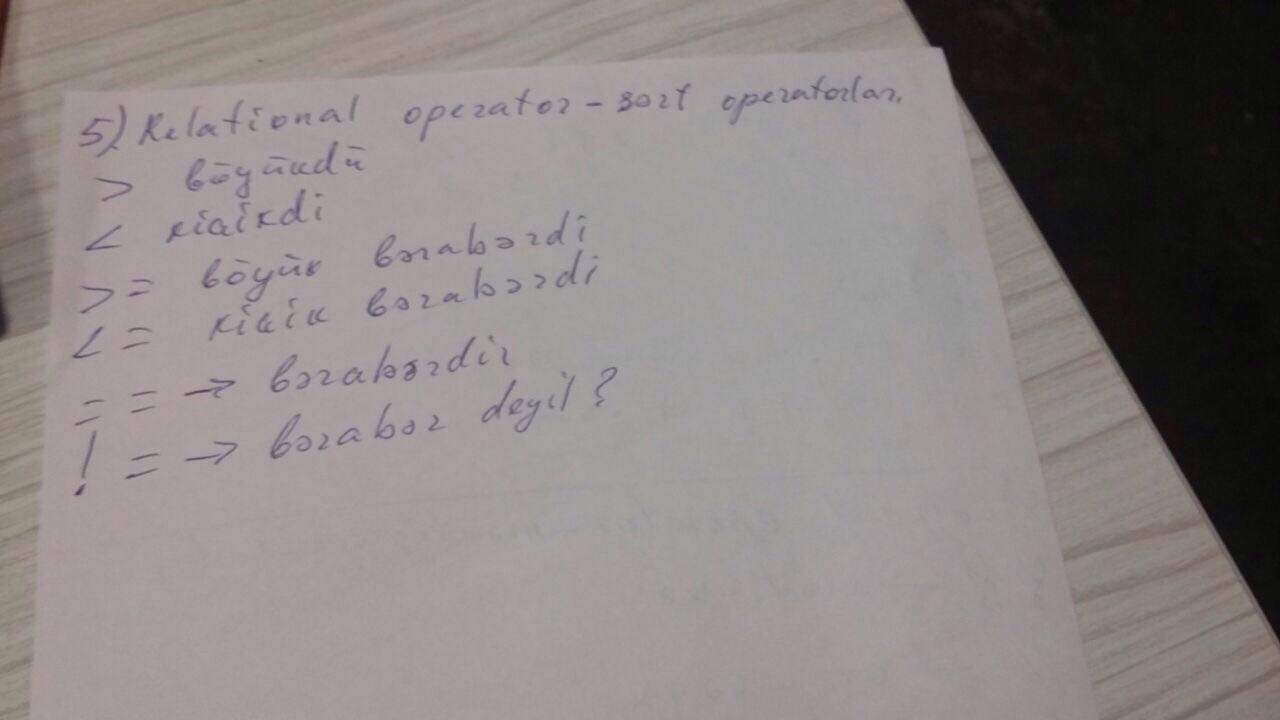 5) Relational operator - sort operatorlar.
> böyükdü
< kiçikdi
>= böyük bərabərdi
<= kiçik bərabərdi
== → bərabərdir
!= → bərabər deyil?